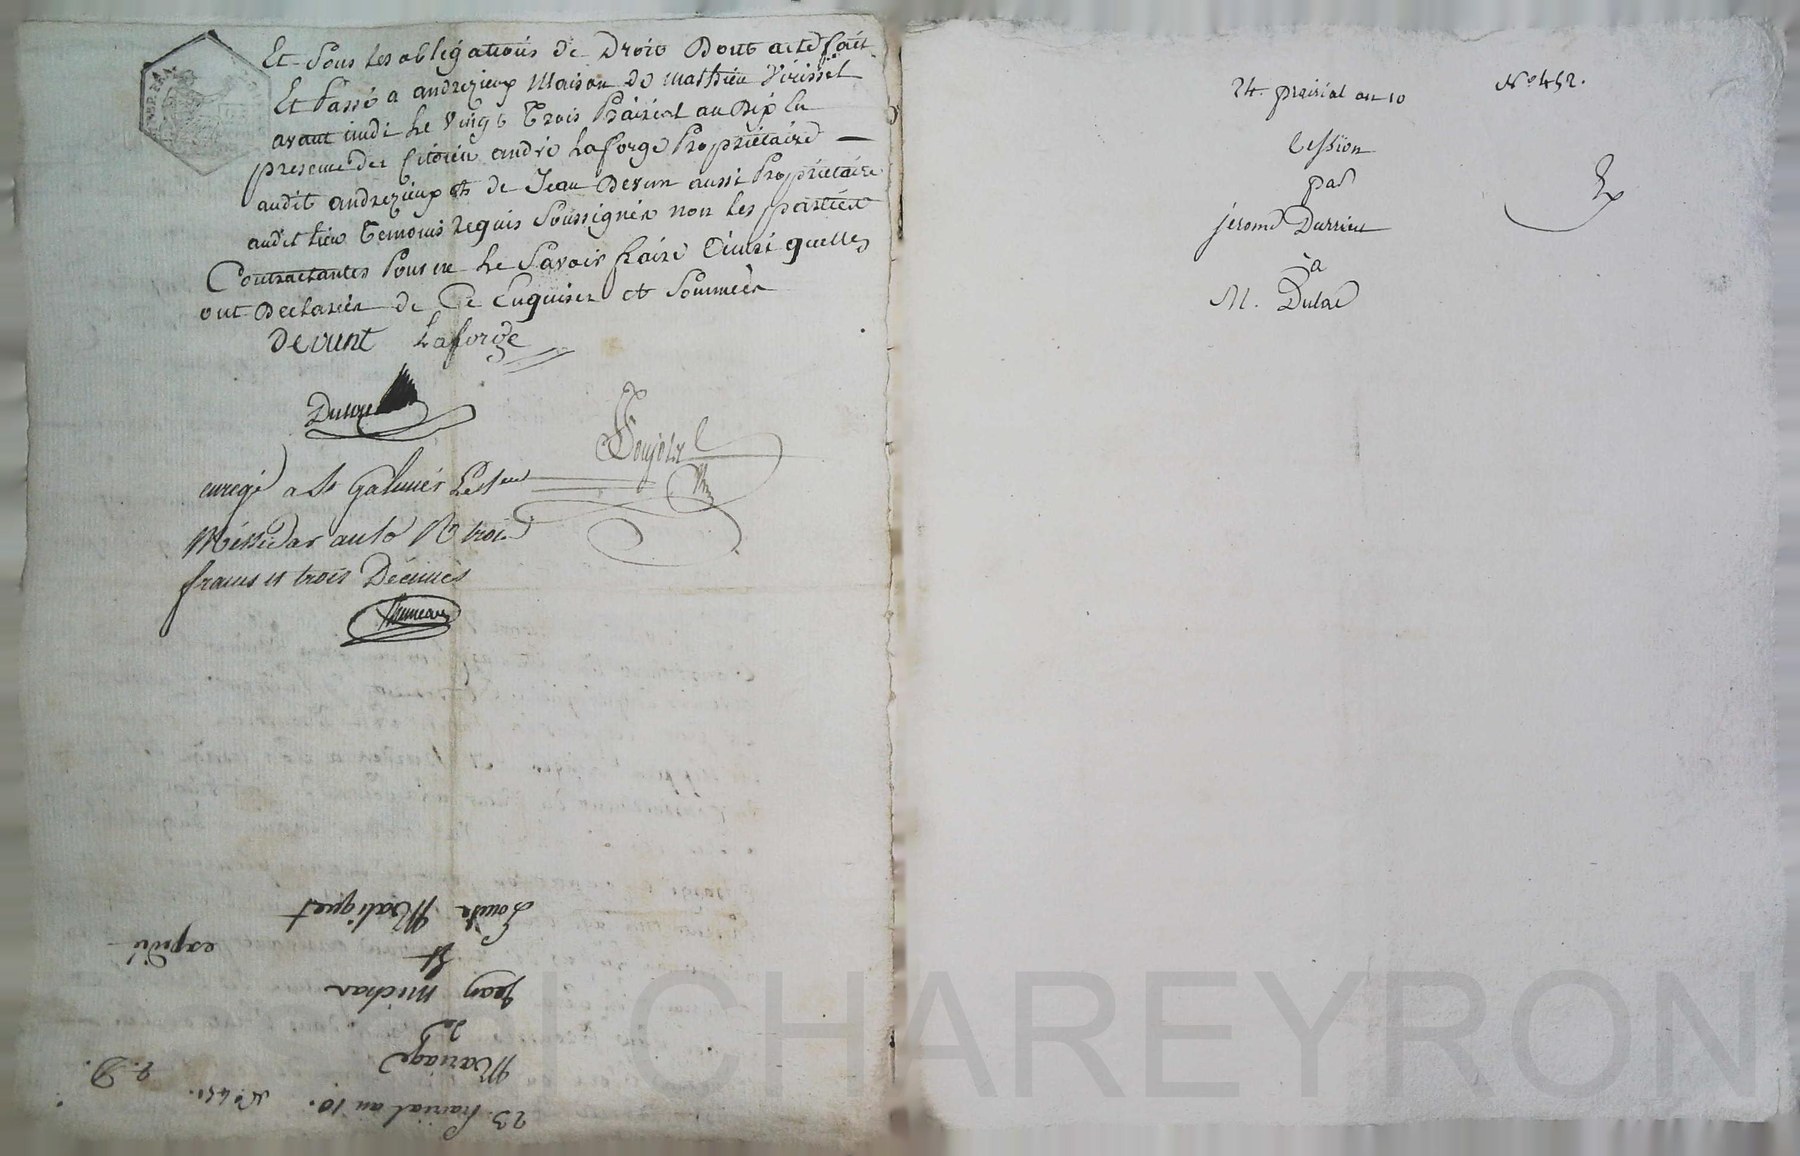 Et Sous les obligations de Droit Dont acte fait
Et Passé a andrezieux Maison de mathieu
avant midi Le Vingt Trois Prairial an Dix En
presence des Citoien andré Laforge Propriétaire
audit andrezieux et de Jean Devun aussi Propriétaire
audit lieu Temoins Requis Soussignés non les parties
Contractantes Pour ne Le Savoir faire Ainsi quelles
ont Declarées de Ce Enquises et Sommées
devunt Laforge
Dulac
enregé a St Galmier Le
Messidor an 10 R trois
francs et trois Décimes
23. Prairial an 10. N° 451.
Mariage
de
jean michar
et
expédié
Louise Maliquet
24. prairial an 10 N° 452.
Cession
par
jerome Durrieu
à
M. Dulac
CHAREYRON